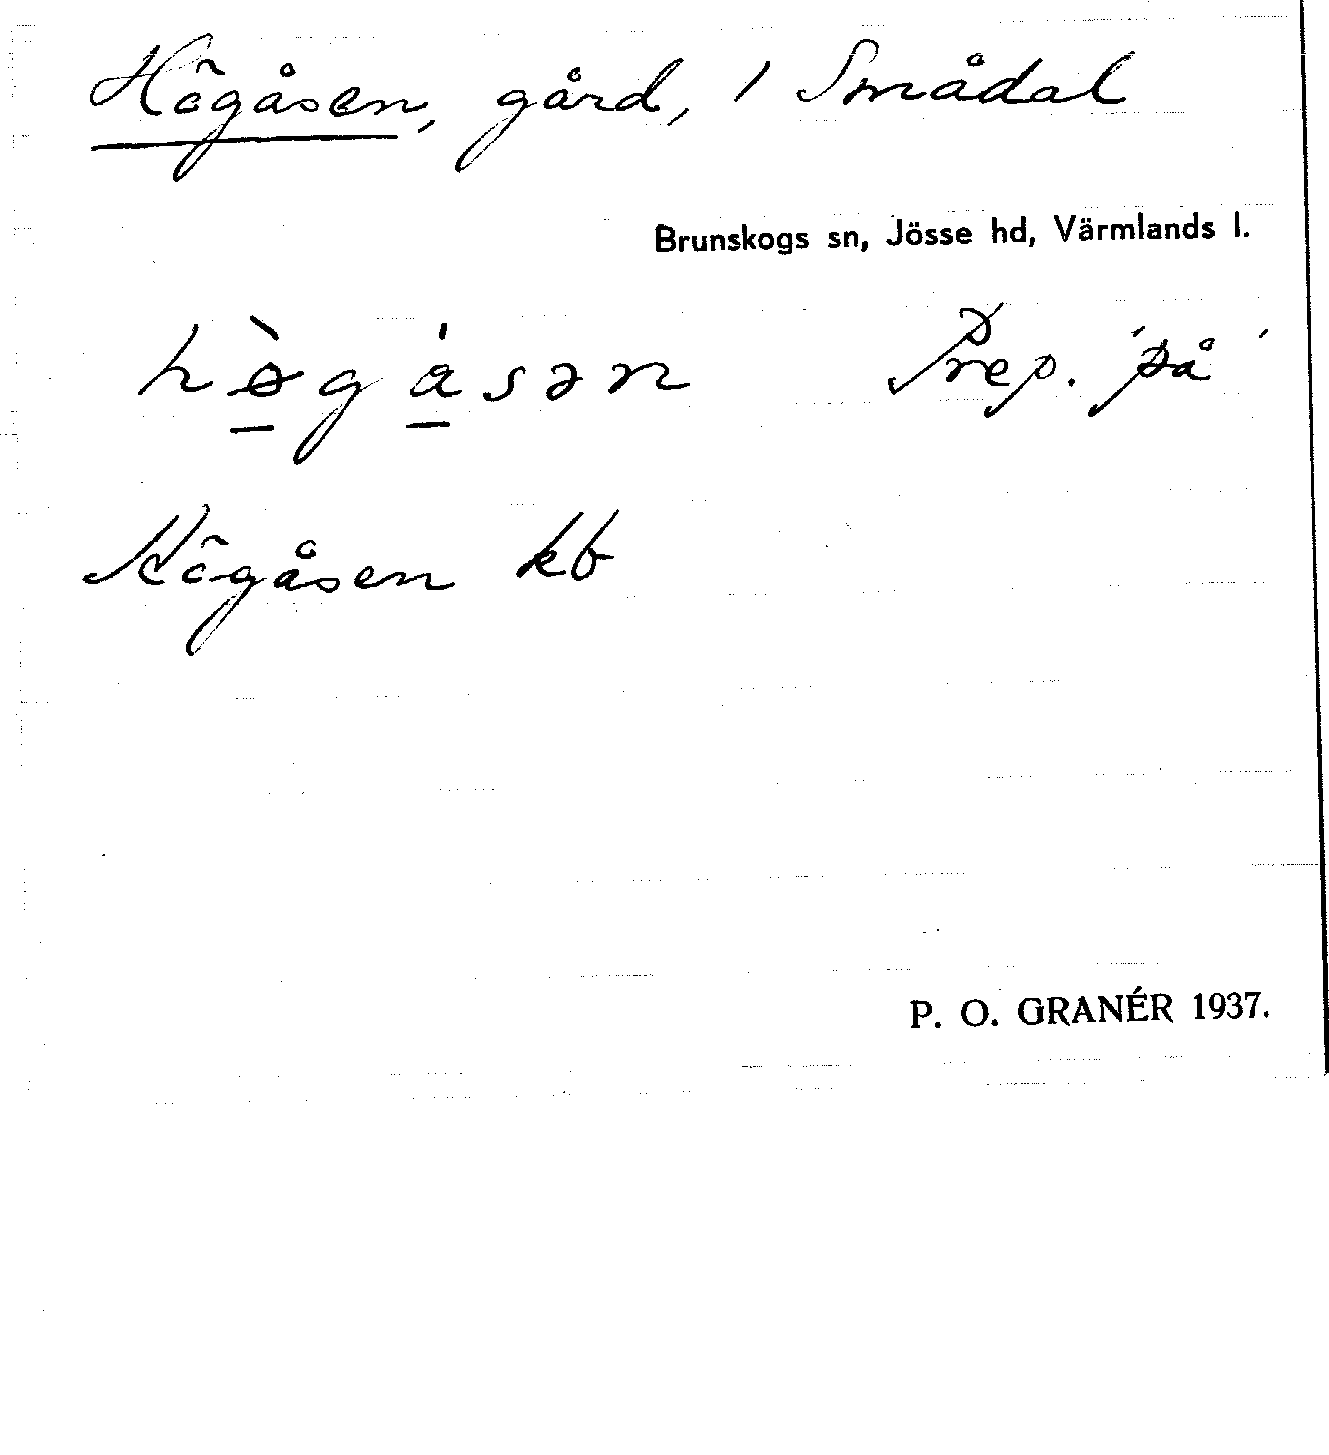 Högåsen, gård, / Smådal
Brunskogs sn, Jösse hd, Värmlands l.
hø̀gásən Prep. 'på'
Högåsen kb
P. O. GRANÉR 1937.